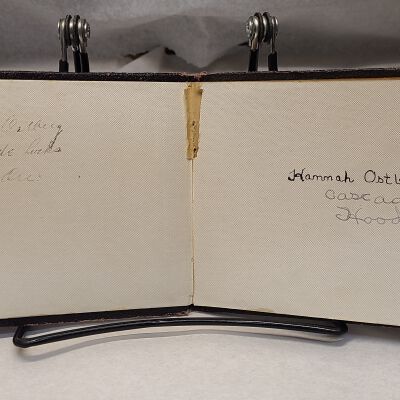 Ostberg
de Locks
Hannah Ostb
Cascad
Hood